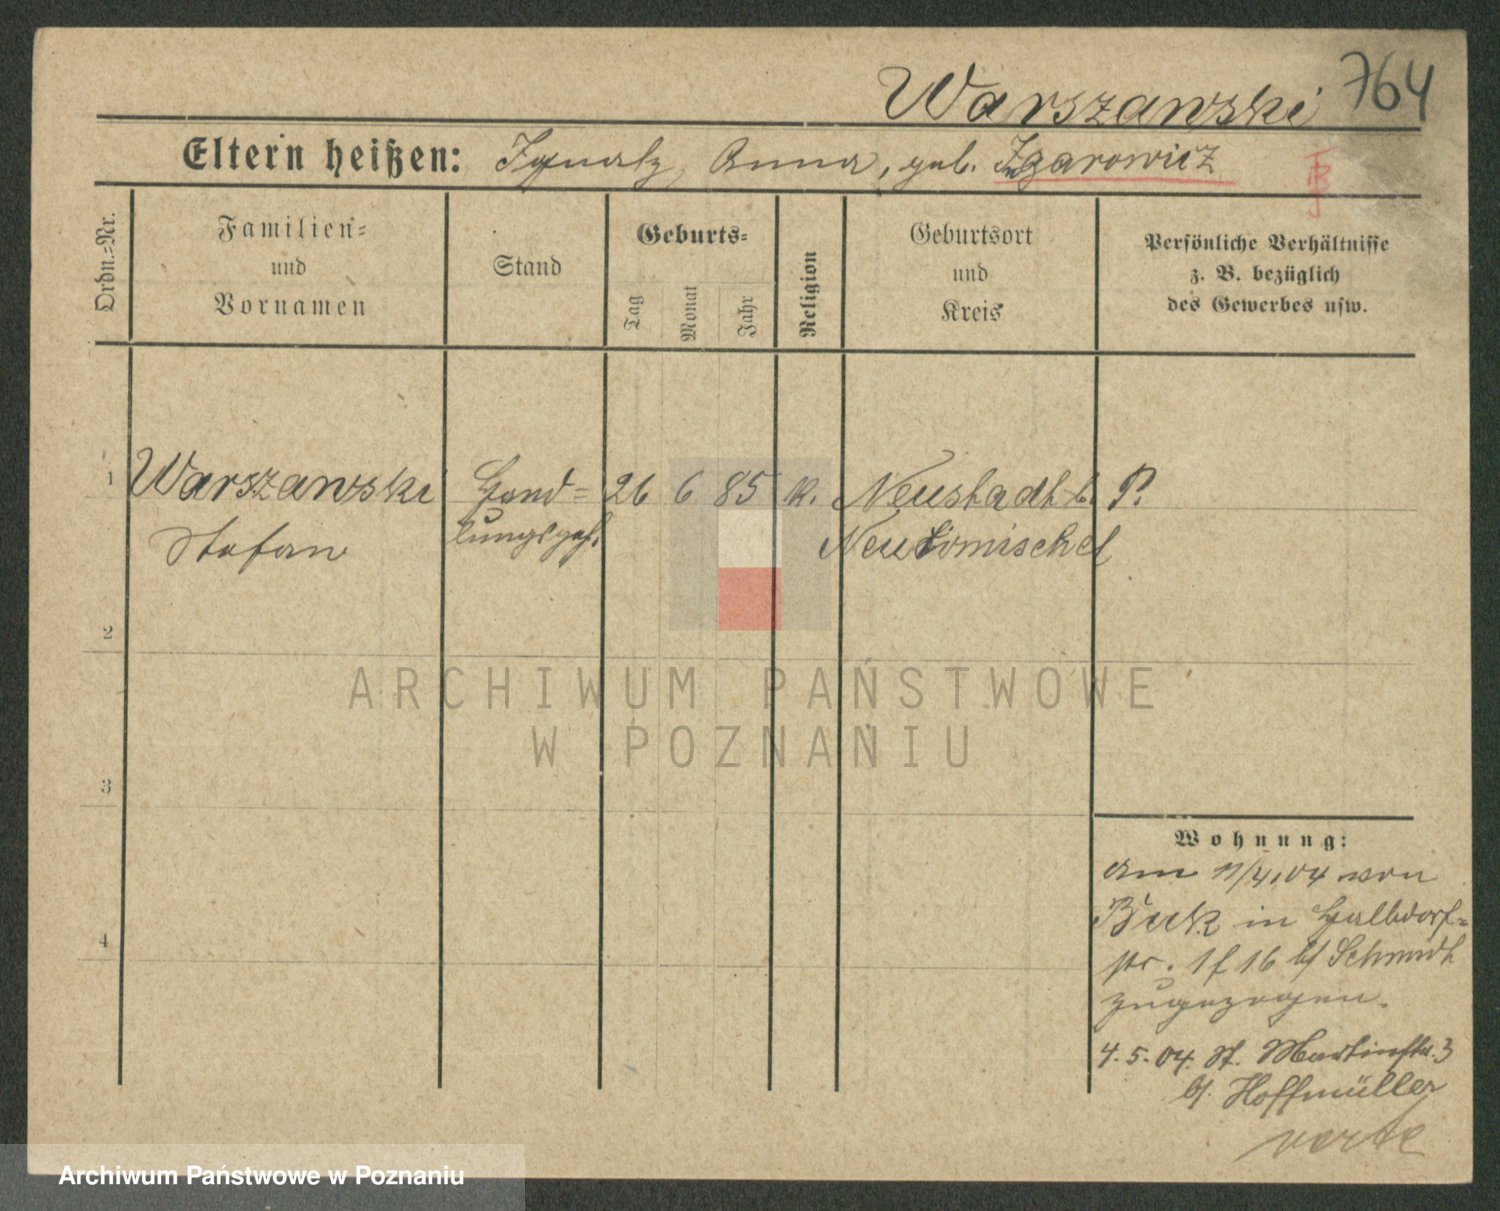 764
Warszawski
Eltern heißen: Ignatz, Anna, geb. Zgarowicz
Ordn.-Nr.
Familien-
und
Vornamen
Stand
Geburts-
Tag
Monat
Jahr
Religion
Geburtsort
und
Kreis
Persönliche Verhältnisse
z. B. bezüglich
des Gewerbes usw.
1 Warszawski Hand= 26 6 85 k. Neustadt b. P.
Stefan lungsgeh. Neutomischel
2
ARCHIWUM PAŃSTWOWE
W POZNANIU
3
4
Wohnung:
Am 11/4.04 von
Buk in Halbdorf=
str. 16 b/ Schmidt
zugezogen.
4.5.04. St. Martinstr. 3
b/. Hoffmüller
verte
Archiwum Państwowe w Poznaniu